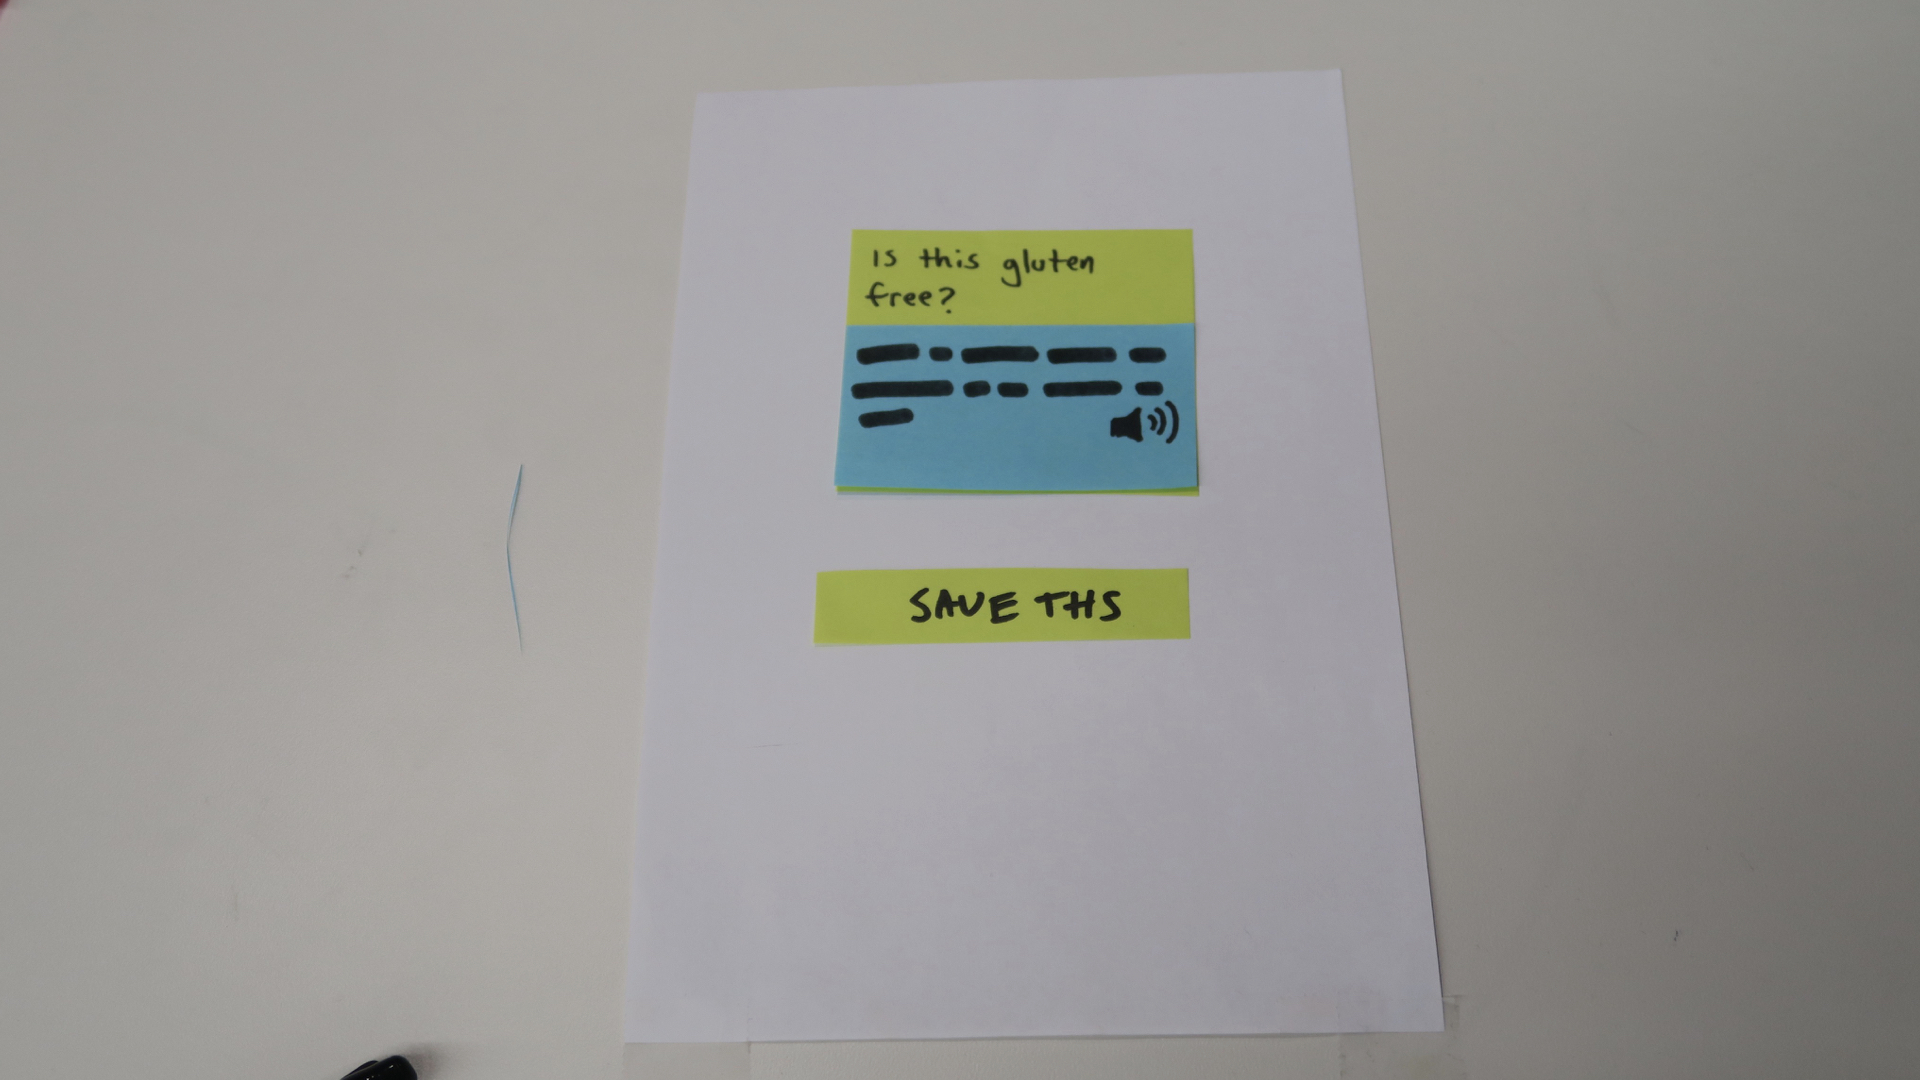 Is this gluten
free?
SAVE THS